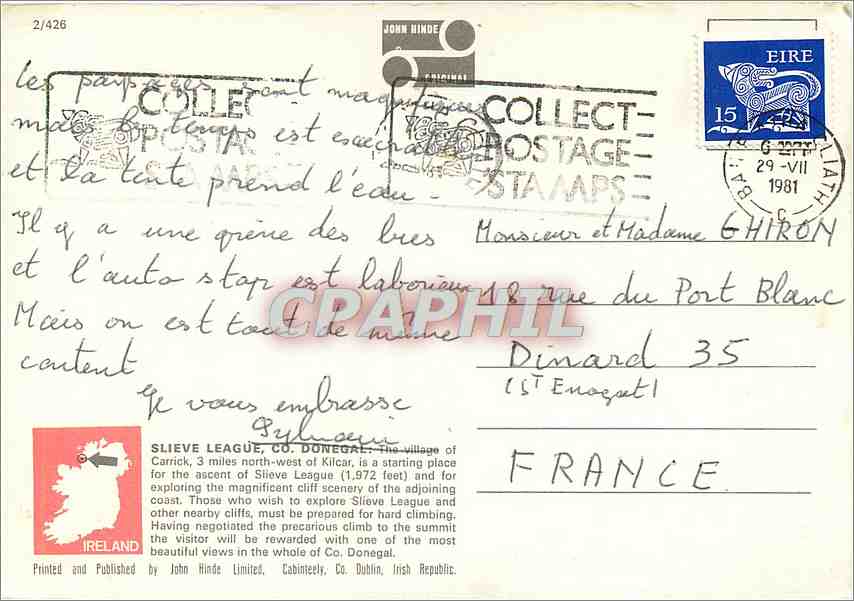 2/426
JOHN HINDE
ORIGINAL
EIRE
15
COLLECT
POSTAGE
STAMPS
COLLECT
POSTAGE
STAMPS
BAILE ÁTHA CLIATH
29-VII
1981
C
Les paysages sont magnifiques
mais le temps est exécrable
et la tente prend l'eau -
Il y a une grève des bus
et l'auto stop est laborieux
Mais on est tout de même
content
Je vous embrasse
Sylvain
Monsieur et Madame GHIRON
18 rue du Port Blanc
Dinard 35
(St Enogat)
FRANCE
CPAPHIL
IRELAND
SLIEVE LEAGUE, CO. DONEGAL: The village of
Carrick, 3 miles north-west of Kilcar, is a starting place
for the ascent of Slieve League (1,972 feet) and for
exploring the magnificent cliff scenery of the adjoining
coast. Those who wish to explore Slieve League and
other nearby cliffs, must be prepared for hard climbing.
Having negotiated the precarious climb to the summit
the visitor will be rewarded with one of the most
beautiful views in the whole of Co. Donegal.
Printed and Published by John Hinde Limited, Cabinteely, Co. Dublin, Irish Republic.